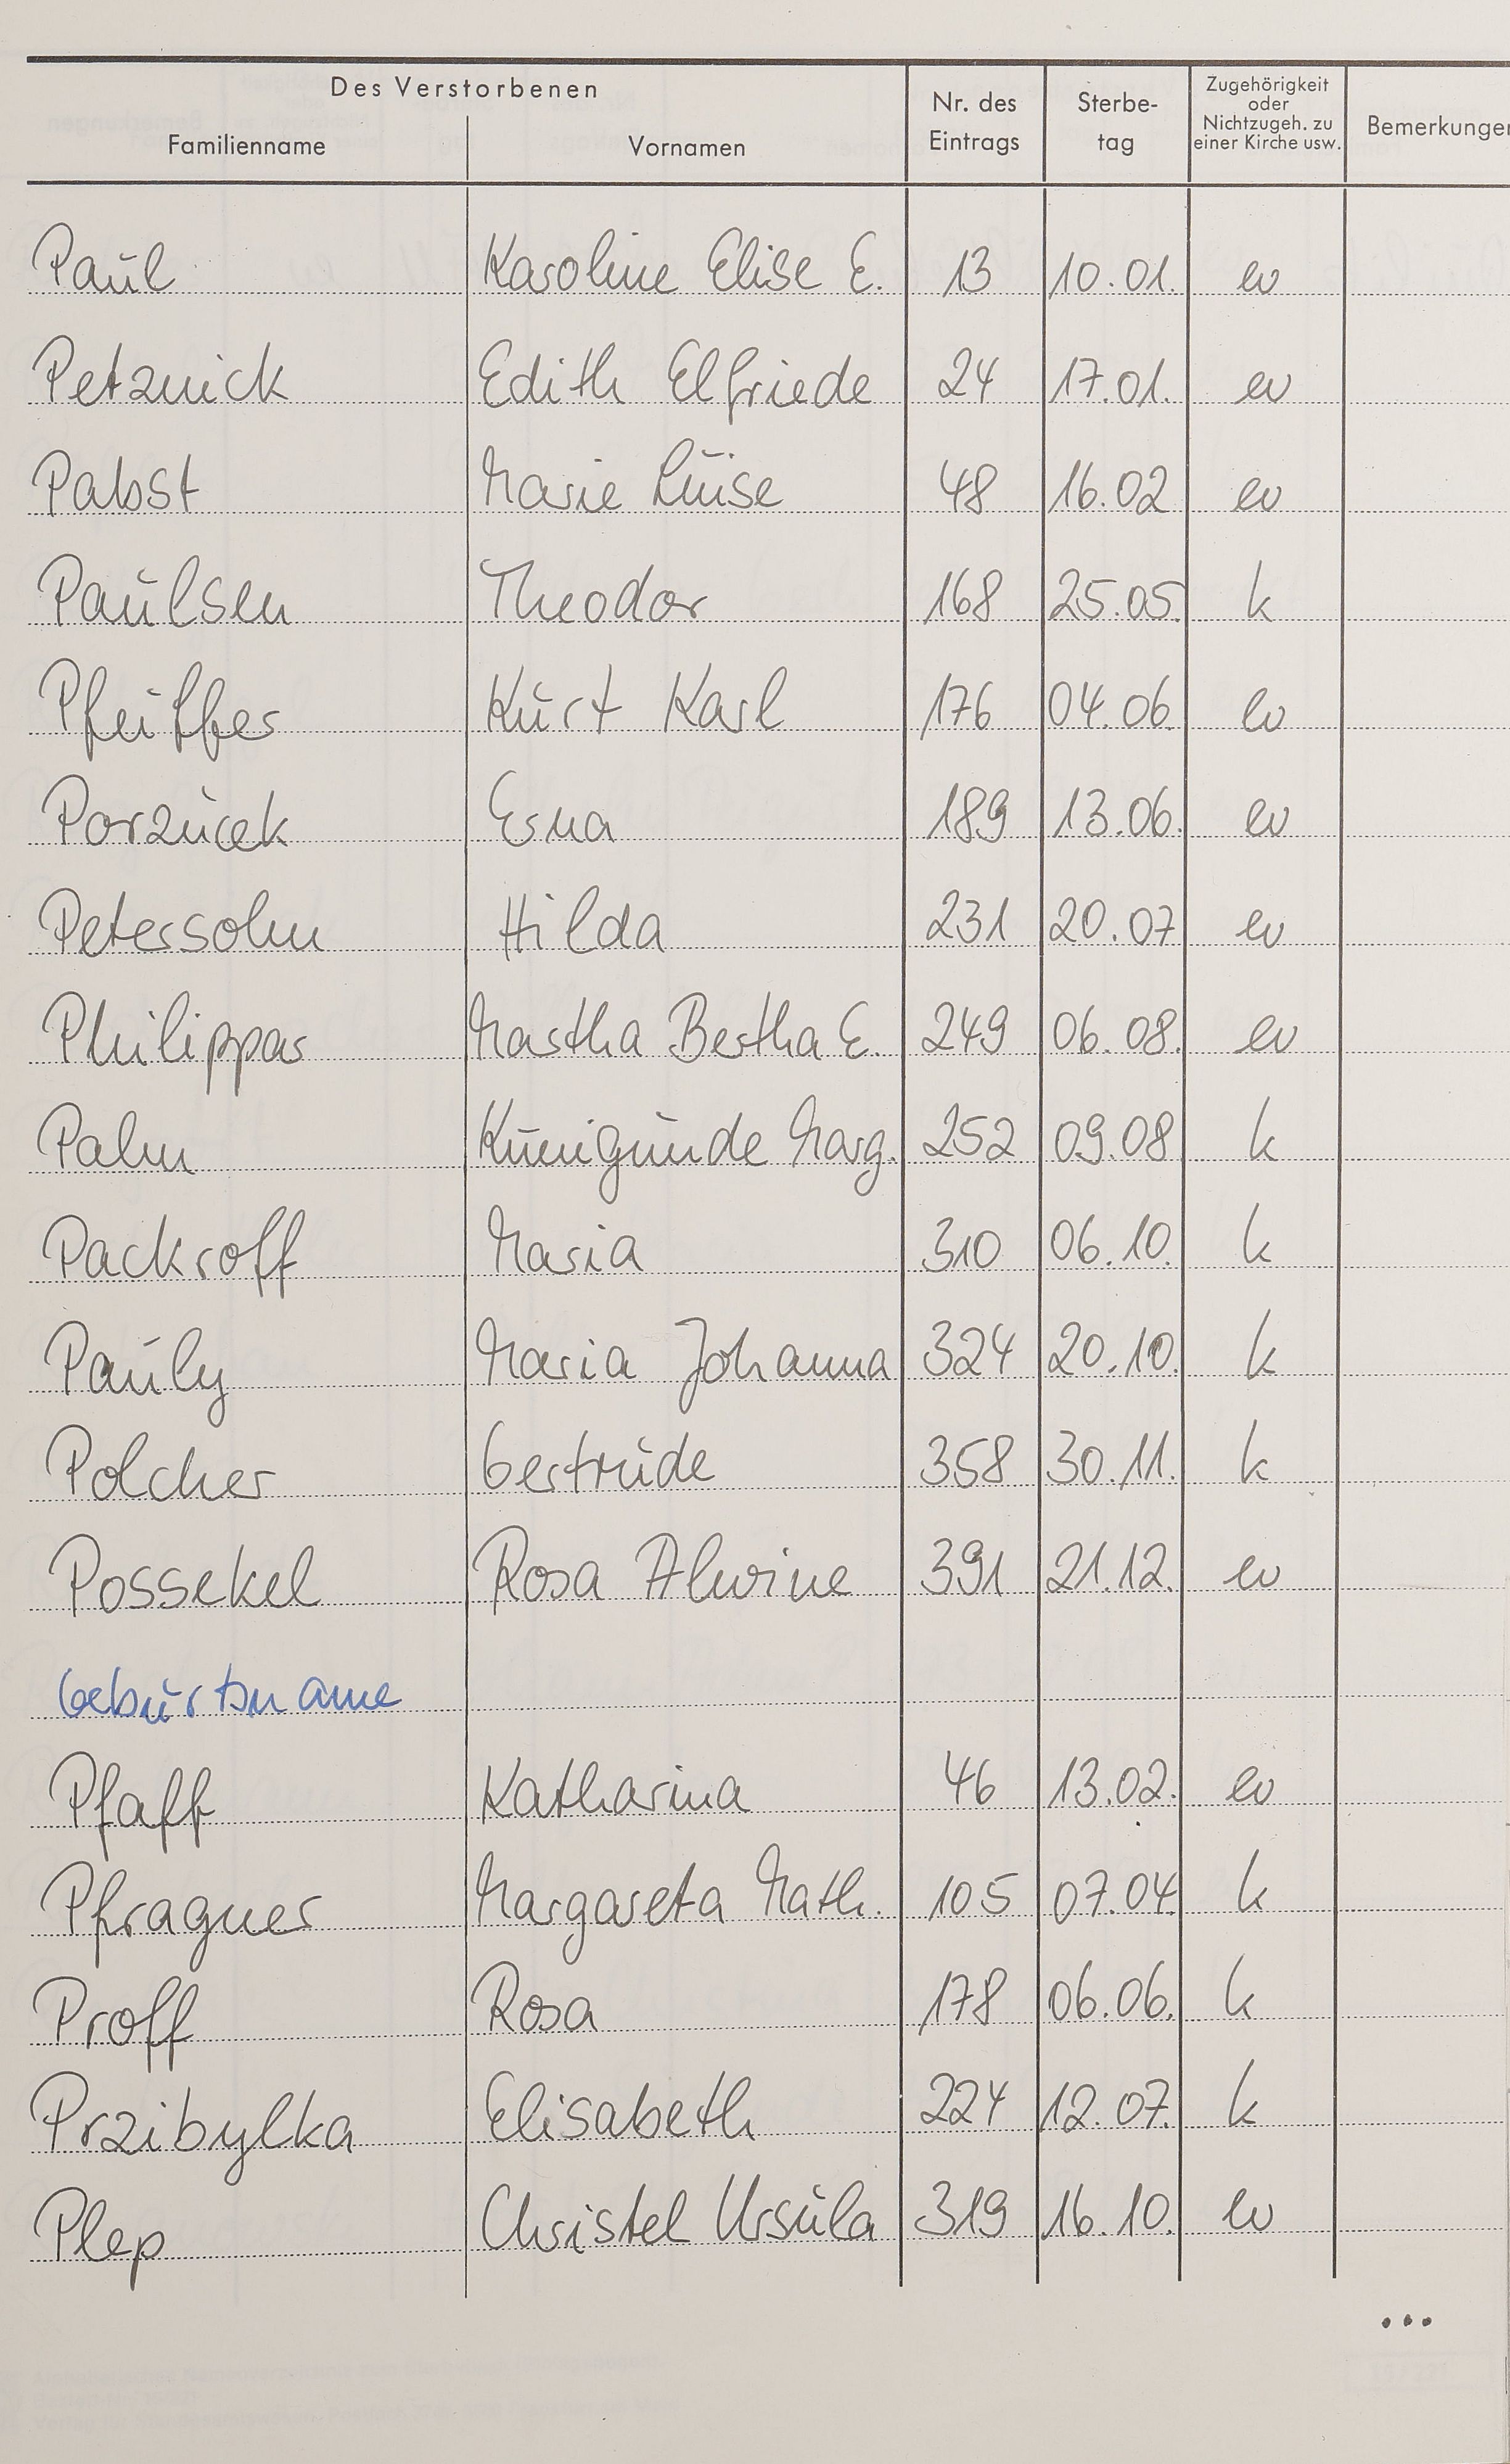 Des Verstorbenen
Familienname Vornamen Nr. des Eintrags Sterbe-tag Zugehörigkeit oder Nichtzugeh. zu einer Kirche usw. Bemerkungen
Paul Karoline Elise E. 13 10.01. ev
Petznick Edith Elfriede 24 17.01. ev
Pabst Marie Luise 48 16.02 ev
Paulsen Theodor 168 25.05. k
Pfeiffer Kurt Karl 176 04.06 ev
Porzucek Erna 189 13.06. ev
Petersohn Hilda 231 20.07 ev
Philippar Martha Bertha E. 249 06.08. ev
Palm Kunigunde Marg. 252 09.08 k
Packroff Maria 310 06.10. k
Pauly Maria Johanna 324 20.10. k
Polcher Gertrude 358 30.11. k
Possekel Rosa Alwine 391 21.12. ev
Geburtsname
Pfaff Katharina 46 13.02. ev
Pfragner Margareta Math. 105 07.04. k
Proff Rosa 178 06.06. k
Przibylka Elisabeth 224 12.07. k
Plep Christel Ursula 319 16.10. ev
...